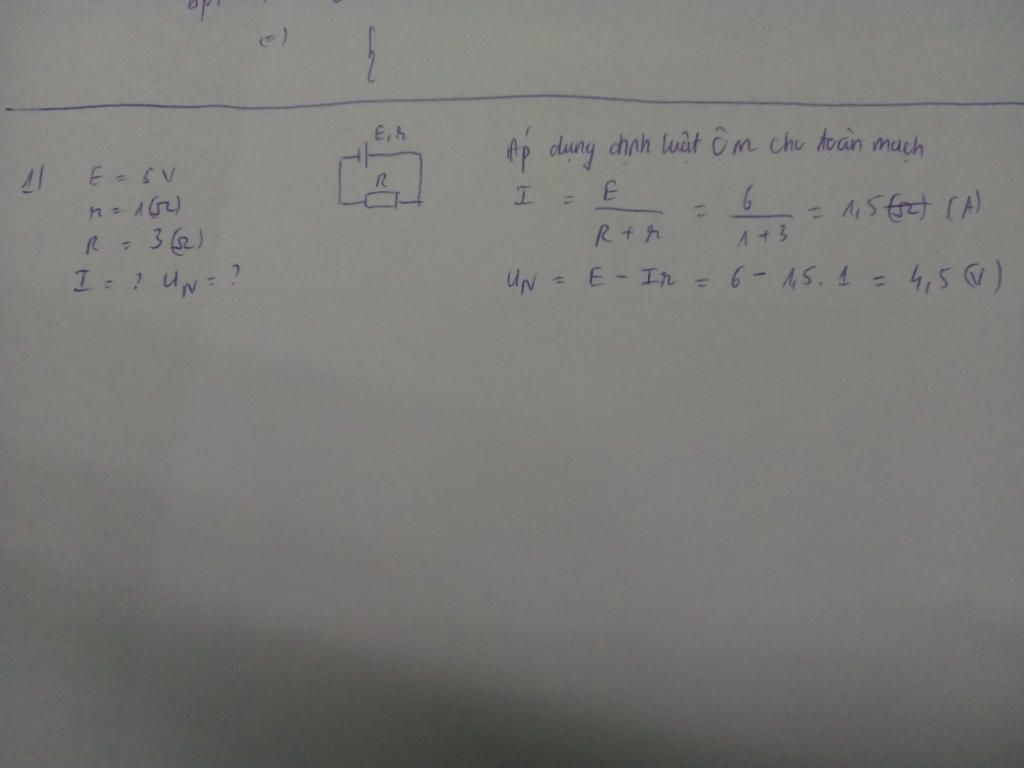 =)
1)
E = 6 V
r = 1(Ω)
R = 3(Ω)
I = ? U_N = ?
E, r
R
Áp dụng định luật Ôm cho toàn mạch
I = E / (R + r) = 6 / (1 + 3) = 1,5 (Ω) (A)
U_N = E - Ir = 6 - 1,5 . 1 = 4,5 (V)